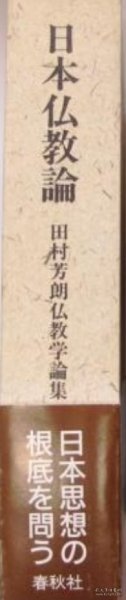 日本仏教論
田村芳朗仏教学論集
日本思想の
根底を問う
春秋社